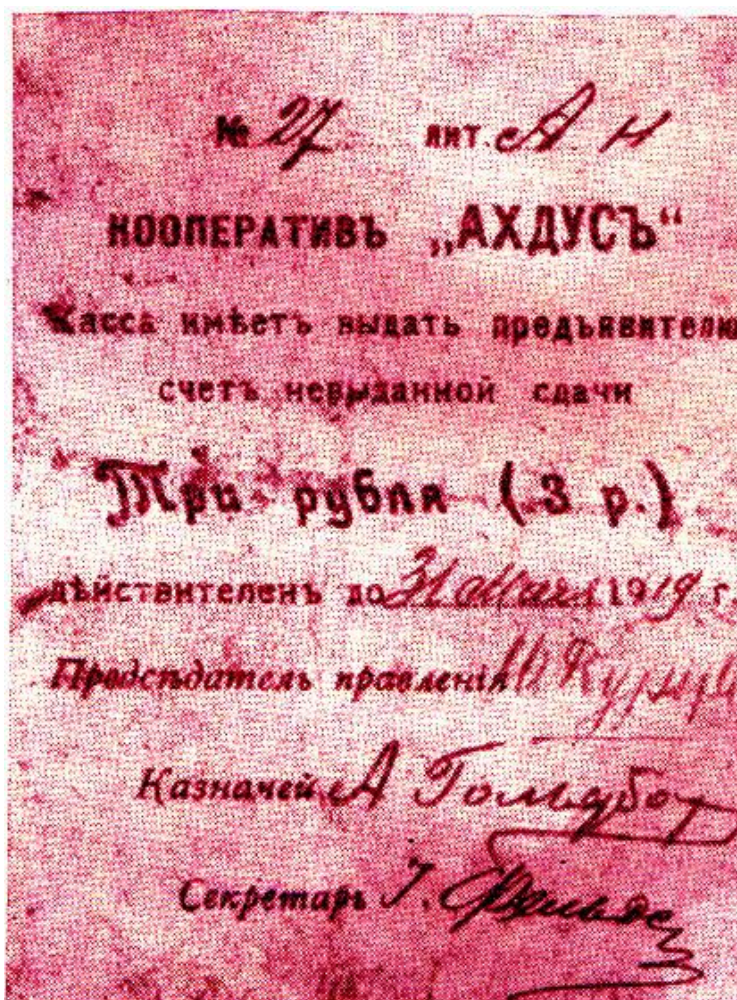 № 27 лит. А Н
КООПЕРАТИВЪ „АХДУСЪ“
Касса имѣетъ выдать предъявителю
счетъ невыданной сдачи
Три рубля (3 р.)
дѣйствителенъ до 31 Мая 1919 г.
Предсѣдатель правленія
Казначей А
Секретарь